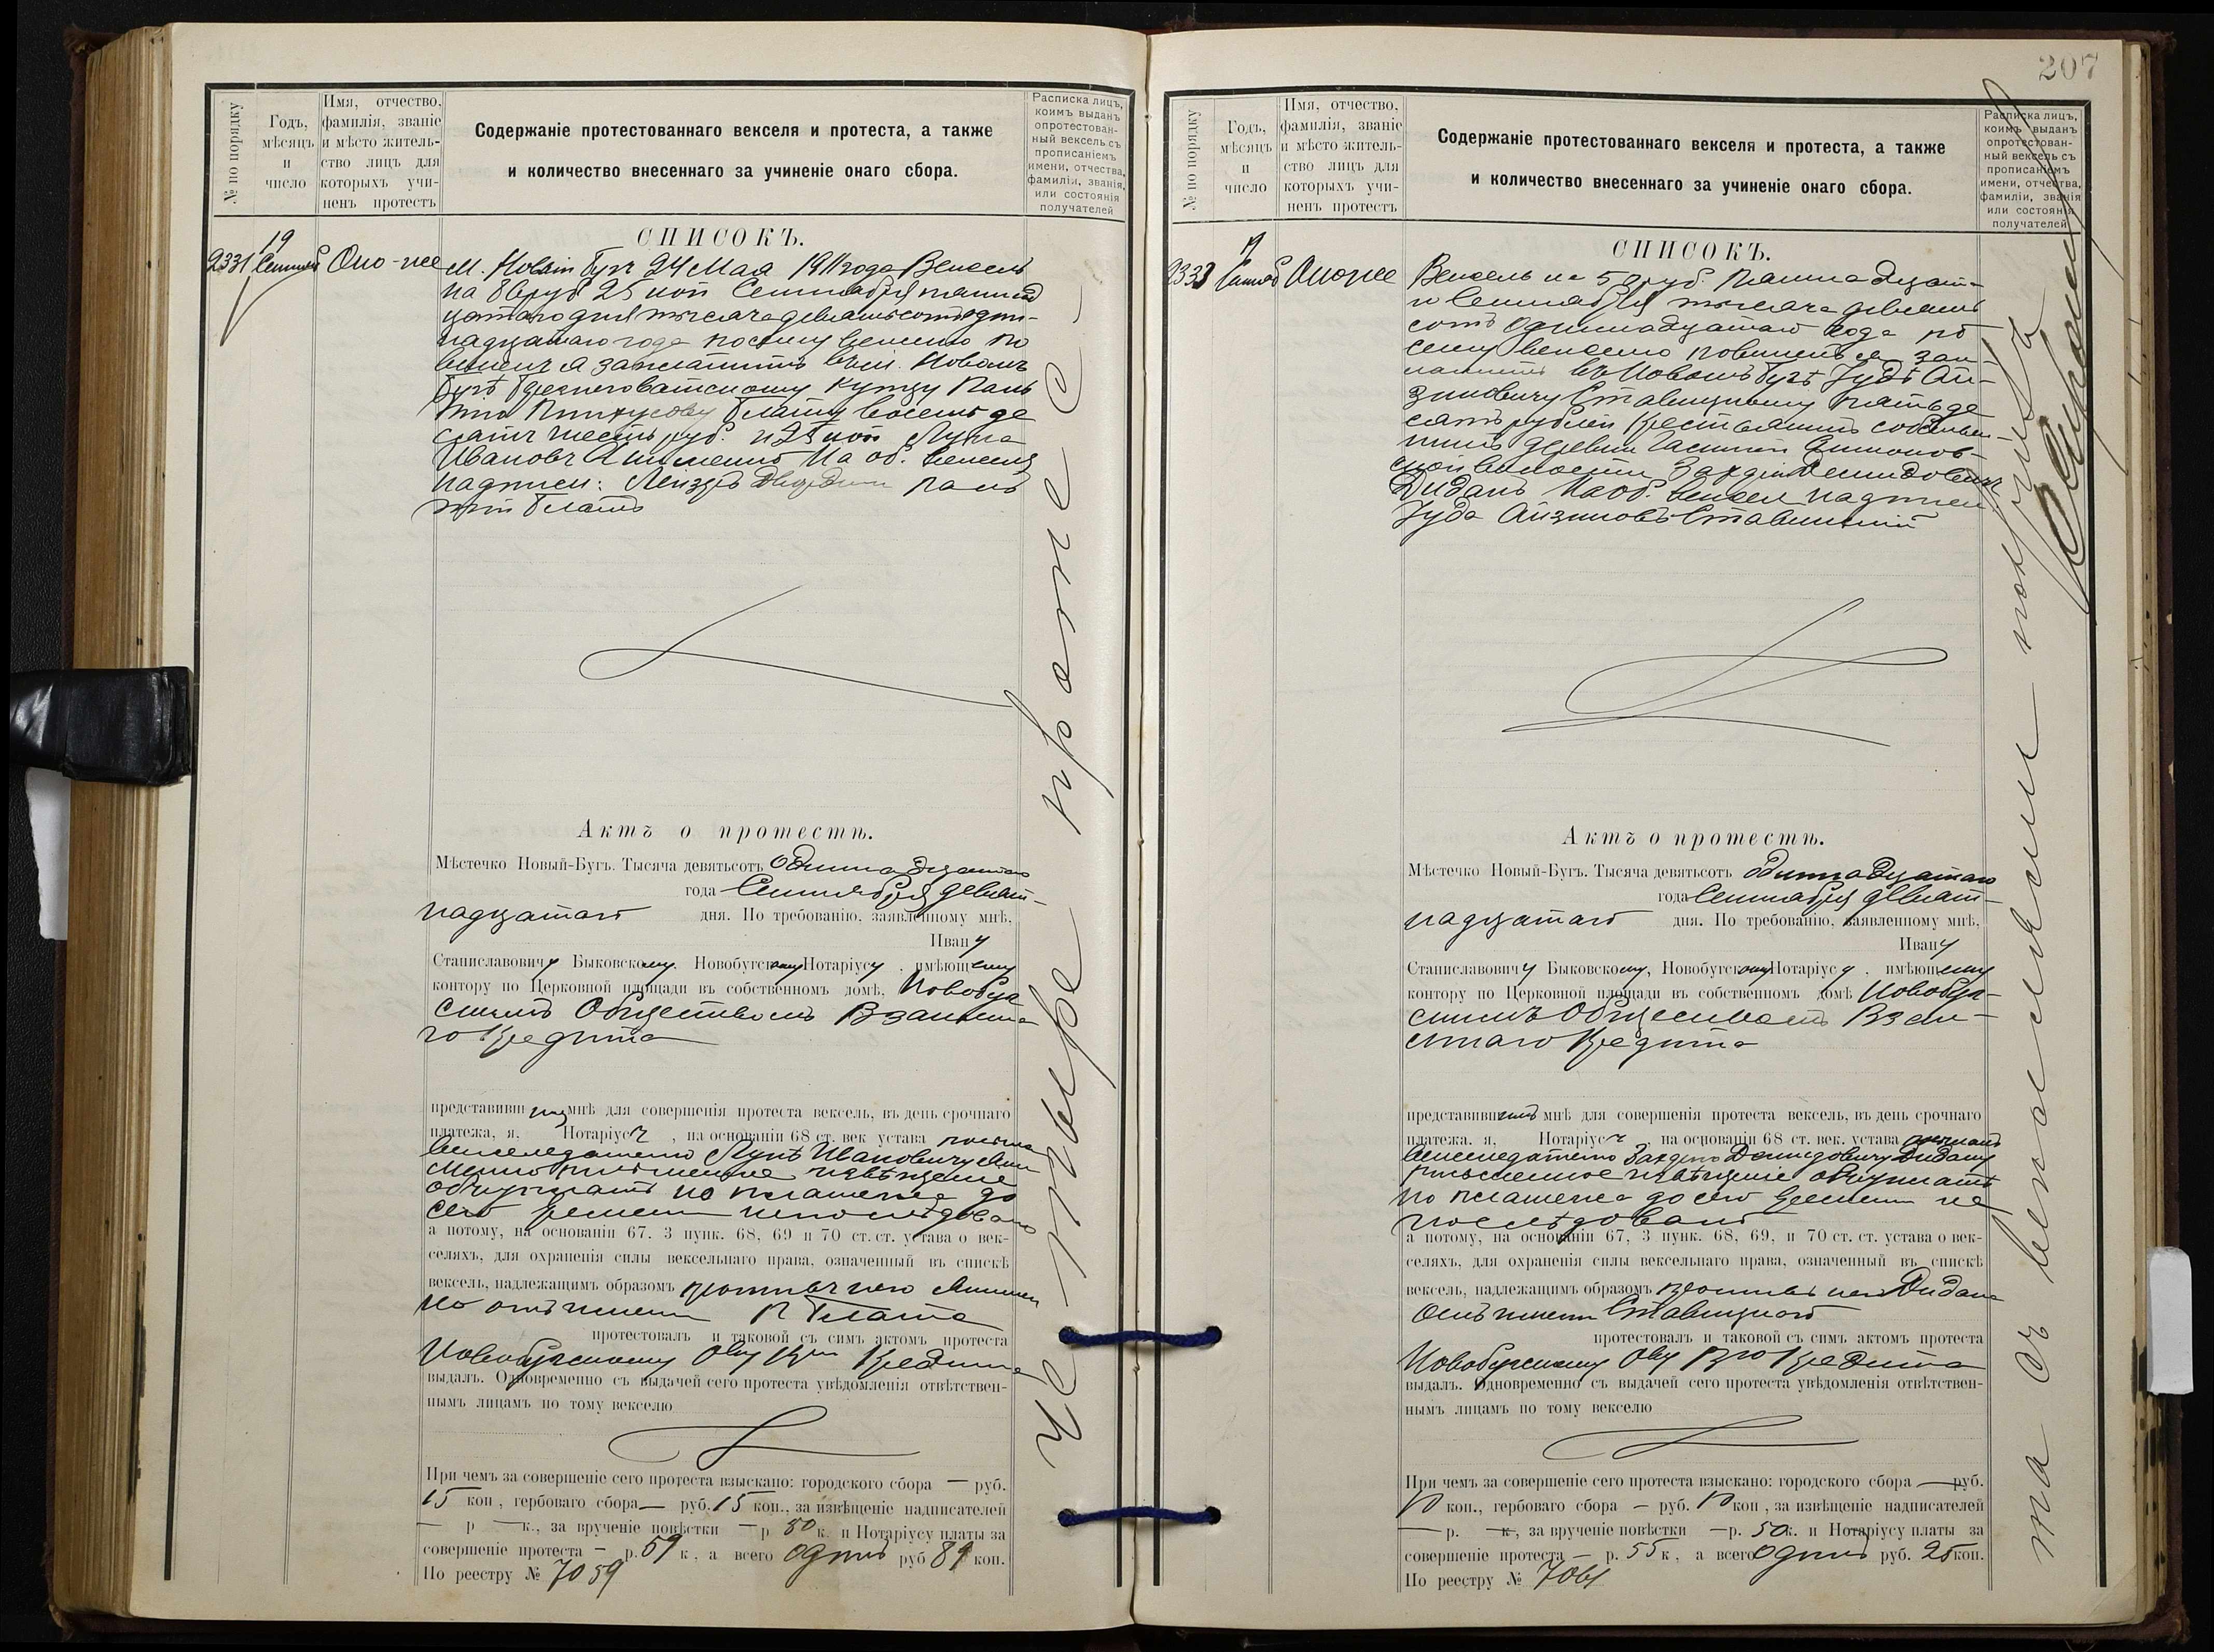 № по порядку
Годъ, мѣсяцъ и число
Имя, отчество, фамилія, званіе и мѣсто жительство лицъ для которыхъ учиненъ протестъ
Содержаніе протестованнаго векселя и протеста, а также
и количество внесеннаго за учиненіе онаго сбора.
Расписка лицъ, коимъ выданъ опротестованный вексель съ прописаніемъ имени, отчества, фамиліи, званія, или состоянія получателей
СПИСОКЪ.
2331 19 Оно-же
М. Новый Бугъ 24 Мая 1911 года Вексель
на 86 руб 25 коп Сентября пятнад
цатаго дня тысяча девятьсотъ оди-
надцатаго года по сему векселю по
виненъ я заплатить въ м. Новомъ
Бугѣ купцу
восемь де
сятъ шесть руб. и 25 коп Лука
Ивановъ На об. векселя
надписи:
Актъ о протестѣ.
Мѣстечко Новый-Бугъ. Тысяча девятьсотъ одиннадцатаго
года Сентября девят-
надцатаго дня. По требованію, заявленному мнѣ,
Ивану
Станиславовичу Быковскому, Новобугскому Нотаріусу, имѣющему
контору по Церковной площади въ собственномъ домѣ, Новобуг
скимъ Обществомъ Взаимна
го Кредита
представившимъ мнѣ для совершенія протеста вексель, въ день срочнаго
платежа, я, Нотаріусъ, на основаніи 68 ст. век устава послалъ
векселедателю Лукѣ Ивановичу
письменное извѣщеніе
но платежа до
сего времени не послѣдовало
а потому, на основаніи 67. 3 пунк. 68, 69 и 70 ст. ст. устава о век-
селяхъ, для охраненія силы вексельнаго права, означенный въ спискѣ
вексель, надлежащимъ образомъ противъ него
протестовалъ и таковой съ симъ актомъ протеста
Новобугскому Кредита
выдалъ. Одновременно съ выдачей сего протеста увѣдомленія отвѣтствен-
нымъ лицамъ по тому векселю
При чемъ за совершеніе сего протеста взыскано: городского сбора — руб.
15 коп, гербоваго сбора — руб. 15 коп., за извѣщеніе надписателей
— р — к., за врученіе повѣстки — р 50 к. и Нотаріусу платы за
совершеніе протеста — р. 59 к, а всего одинъ руб 89 коп.
По реестру № 7059
Четыре
207
№ по порядку
Годъ, мѣсяцъ и число
Имя, отчество, фамилія, званіе и мѣсто жительство лицъ для которыхъ учиненъ протестъ
Содержаніе протестованнаго векселя и протеста, а также
и количество внесеннаго за учиненіе онаго сбора.
Расписка лицъ, коимъ выданъ опротестованный вексель съ прописаніемъ имени, отчества, фамиліи, званія или состоянія получателей
СПИСОКЪ.
2333 19 Оно-же
Вексель на 50 руб. Пятнадцат-
го Сентября тысяча девять
сотъ одиннадцатаго года по
сему векселю повиненъ я зап-
латить въ Новомъ Бугѣ Іудѣ Ай-
зиковичу Ставицкому пятьде
сятъ рублей крестьянинъ собствен-
никъ деревни
волости Демидовичъ
Диданъ На об. векселя надписи:
Іуда Айзиковъ Ставицкій
Актъ о протестѣ.
Мѣстечко Новый-Бугъ. Тысяча девятьсотъ одиннадцатаго
года Сентября девят-
надцатаго дня. По требованію, заявленному мнѣ,
Ивану
Станиславовичу Быковскому, Новобугскому Нотаріусу, имѣющему
контору по Церковной площади въ собственномъ домѣ Новобуг-
скимъ Обществомъ Взаи-
мнаго Кредита
представившимъ мнѣ для совершенія протеста вексель, въ день срочнаго
платежа. я, Нотаріусъ, на основаніи 68 ст. век. устава послалъ
векселедателю Демидовичу Дидану
письменное извѣщеніе
но платежа до сего времени не
послѣдовало
а потому, на основаніи 67, 3 пунк. 68, 69, и 70 ст. ст. устава о век-
селяхъ, для охраненія силы вексельнаго права, означенный въ спискѣ
вексель, надлежащимъ образомъ противъ него Дидана
отъ имени Ставицкаго
протестовалъ и таковой съ симъ актомъ протеста
Новобугскому Кредита
выдалъ. Одновременно съ выдачей сего протеста увѣдомленія отвѣтствен-
нымъ лицамъ по тому векселю
При чемъ за совершеніе сего протеста взыскано: городского сбора — руб.
10 коп., гербоваго сбора — руб. 10 коп, за извѣщеніе надписателей
— р. — к, за врученіе повѣстки — р. 50 к. и Нотаріусу платы за
совершеніе протеста — р. 55 к, а всего одинъ руб. 25 коп.
По реестру № 7061
та съ векселями получилъ